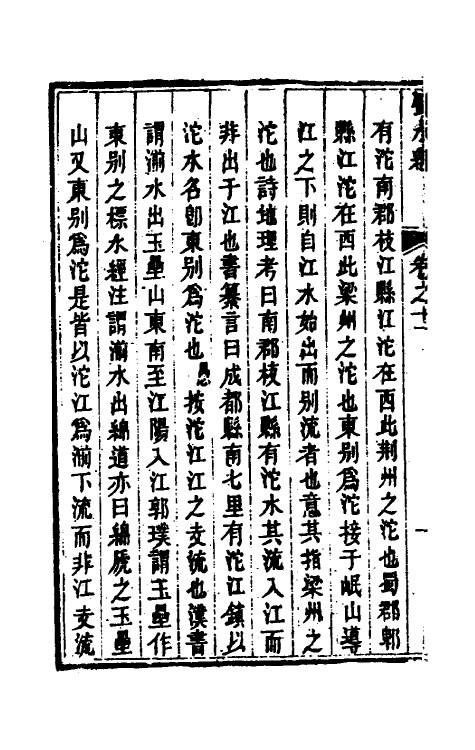 卷之十二
有沱南郡枝江縣江沱在西此荆州之沱也蜀郡郫
縣江沱在西此梁州之沱也東别爲沱接于岷山導
江之下則自江水始出而别流者也意其指梁州之
沱也詩地理考曰南郡枝江縣有沱水其流入江而
非出于江也書纂言曰成都縣南七里有沱江鎮以
沱水名卽東别爲沱也 按沱江江之支流也漢書
謂湔水出玉壘山東南至江陽入江郭璞謂玉壘作
東别之標水經注謂湔水出緜道亦曰緜虒之玉壘
山又東别爲沱是皆以沱江爲湔下流而非江支流